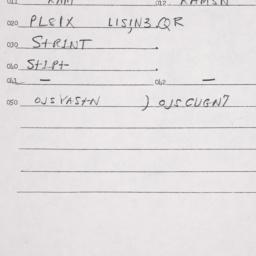 011 RAM 012 RAMSN
020 PLSIX LISIN3.QR
030 StRINT .
040 StIPt .
041 — 042 —
050 OJSVAStN ) OJSCUGN7